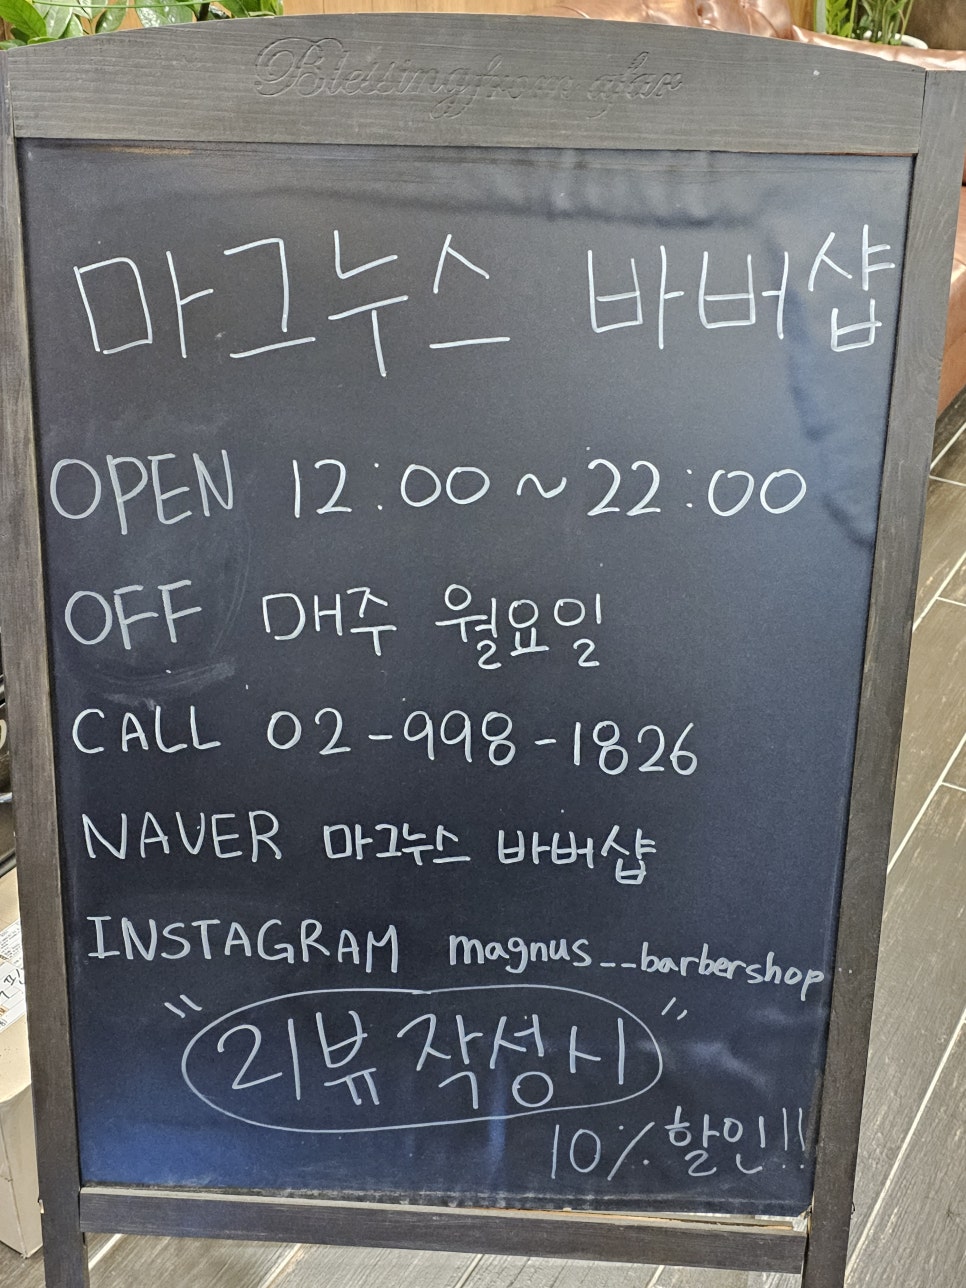 Blessing from afar
마그누스 바버샵
OPEN 12:00~22:00
OFF 매주 월요일
CALL 02-998-1826
NAVER 마그누스 바버샵
INSTAGRAM magnus__barbershop
"리뷰 작성시"
10% 할인!!